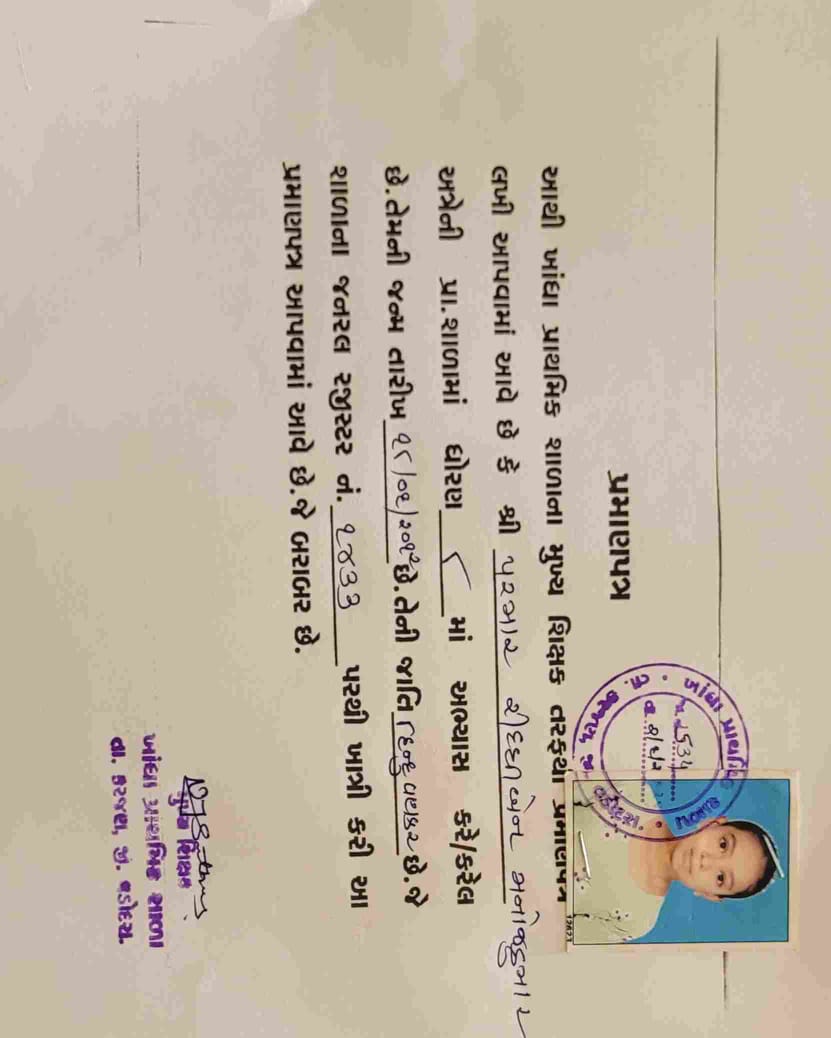 પ્રમાણપત્ર
આથી ખાંધા પ્રાથમિક શાળાના મુખ્ય શિક્ષક તરફથી પ્રમાણપત્ર
લખી આપવામાં આવે છે કે શ્રી પરમાર રીદ્ધીબેન મનોજકુમાર
અત્રેની પ્રા.શાળામાં ધોરણ ૮ માં અભ્યાસ કરે/કરેલ
છે.તેમની જન્મ તારીખ ૨૮/૦૬/૨૦૧૨ છે.તેની જાતિ હિન્દુ વણકર છે.જે
શાળાના જનરલ રજીસ્ટર નં. ૨૪૩૩ પરથી ખાત્રી કરી આ
પ્રમાણપત્ર આપવામાં આવે છે.જે બરાબર છે.
મુખ્ય શિક્ષક
ખાંધા પ્રાથમિક શાળા
તા. કરજણ, જી. વડોદરા.